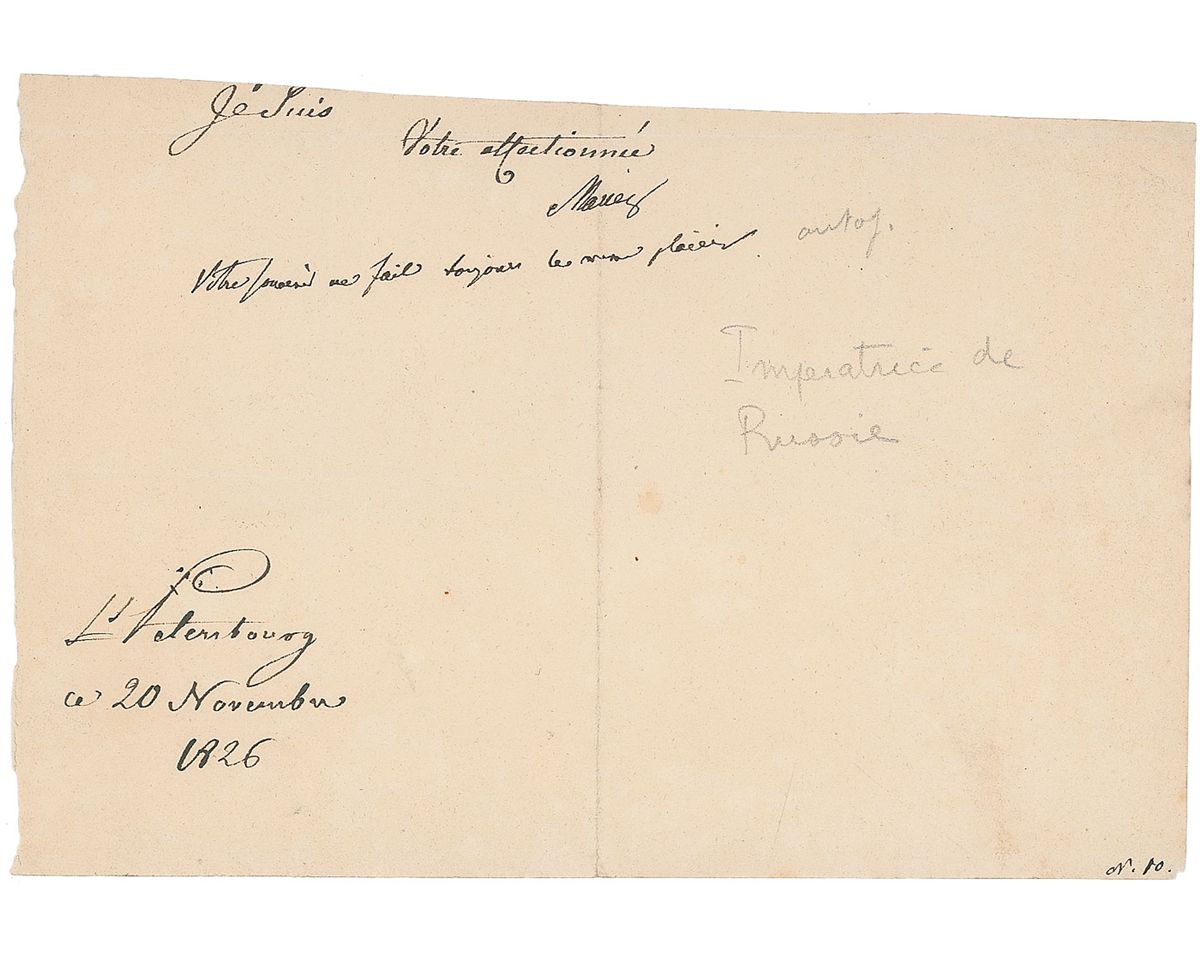 Je Suis
Votre affectionnée
Marie
Votre souvenir me fait toujours le même plaisir
autog.
Imperatrice de
Russie
St Petersbourg
ce 20 Novembre
1826
N. 10.